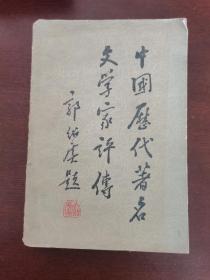 中國歷代著名
文学家評傳
郭绍虞題